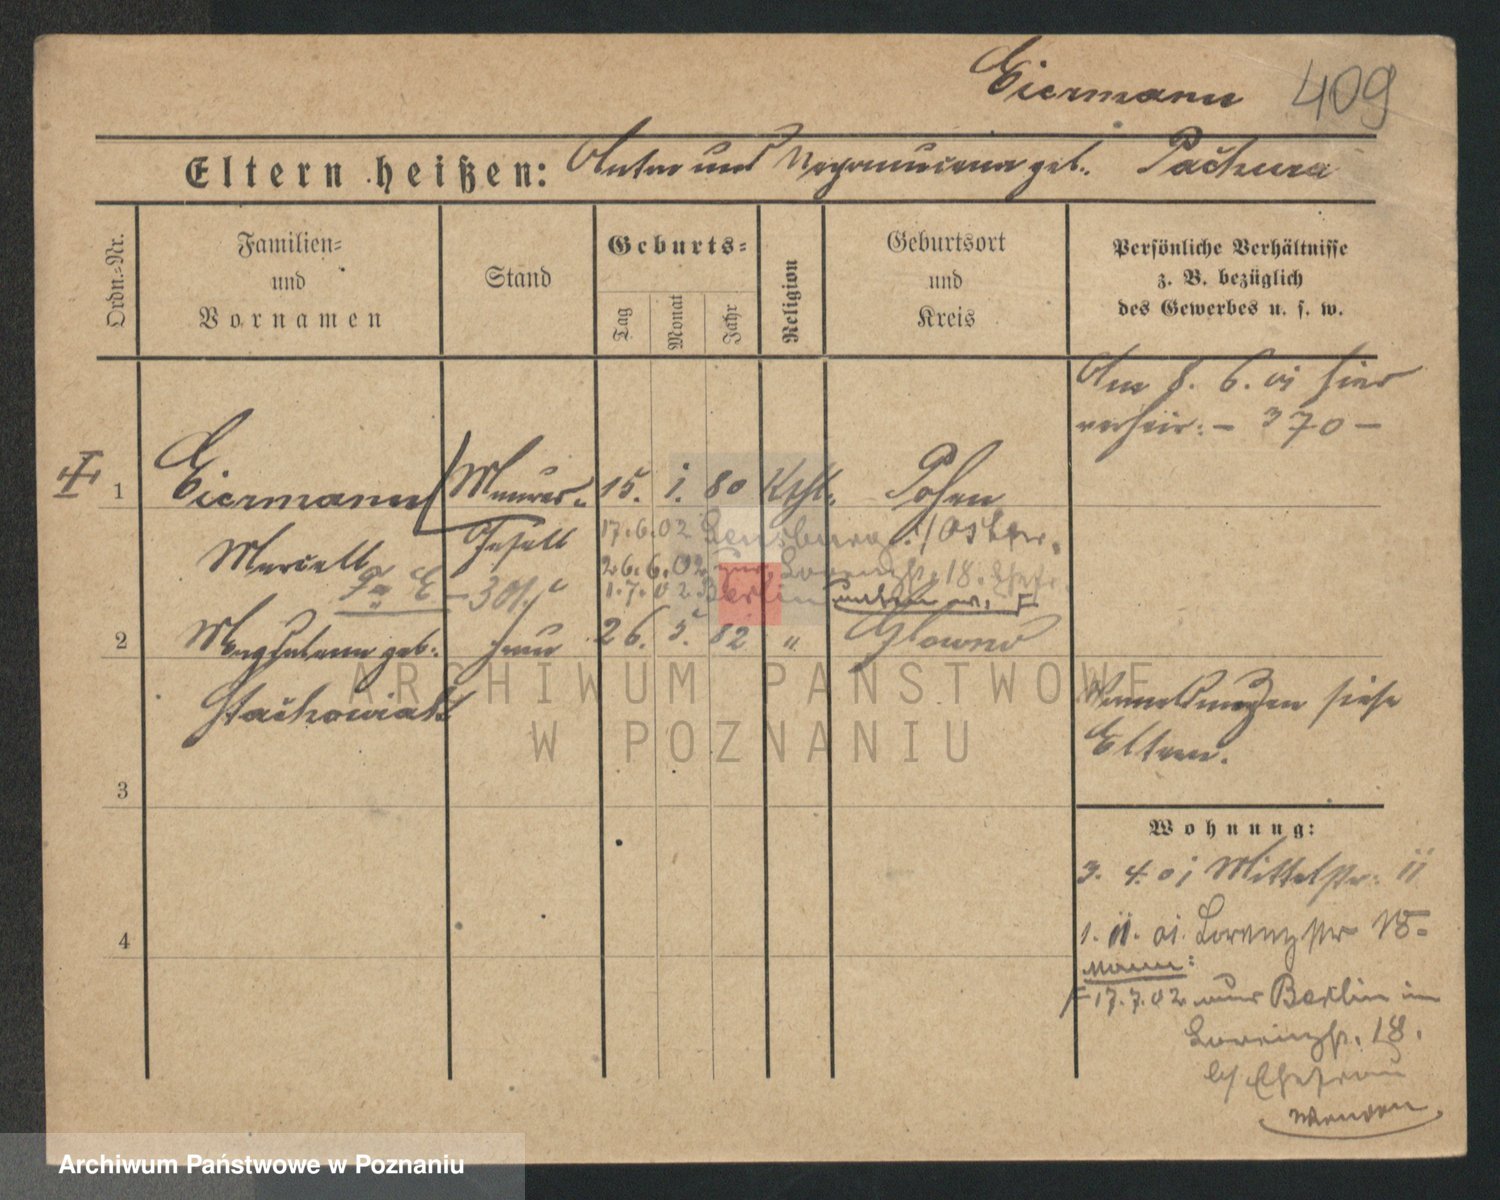 Eiermann 409
Eltern heißen: Anton und geb. Pachura
Ordn.-Nr.
Familien-
und
Vornamen
Stand
Geburts-
Tag
Monat
Jahr
Religion
Geburtsort
und
Kreis
Persönliche Verhältnisse
z. B. bezüglich
des Gewerbes u. s. w.
Am 8. 6. 01 hier
verheir: – 370 –
1 Eiermann Maurer- 15. 1. 80 Kath. Posen
Marcell Gesell 17.6.02 Sensburg
26.6.02 Lorenzstr. 18.
1.7.02 Berlin
2 Magdalena geb. Frau 26. 5. 82 " Glowno
Stachowiak
Anmeldungen siehe
Eltern.
3
Wohnung:
3. 4. 01 Mittelstr. 11
1. 11. 01. Lorenzstr 18-
4
Mann:
17.7.02 aus Berlin in
Lorenzstr. 18.
b/ Ehefrau
ARCHIWUM PAŃSTWOWE
W POZNANIU
Archiwum Państwowe w Poznaniu